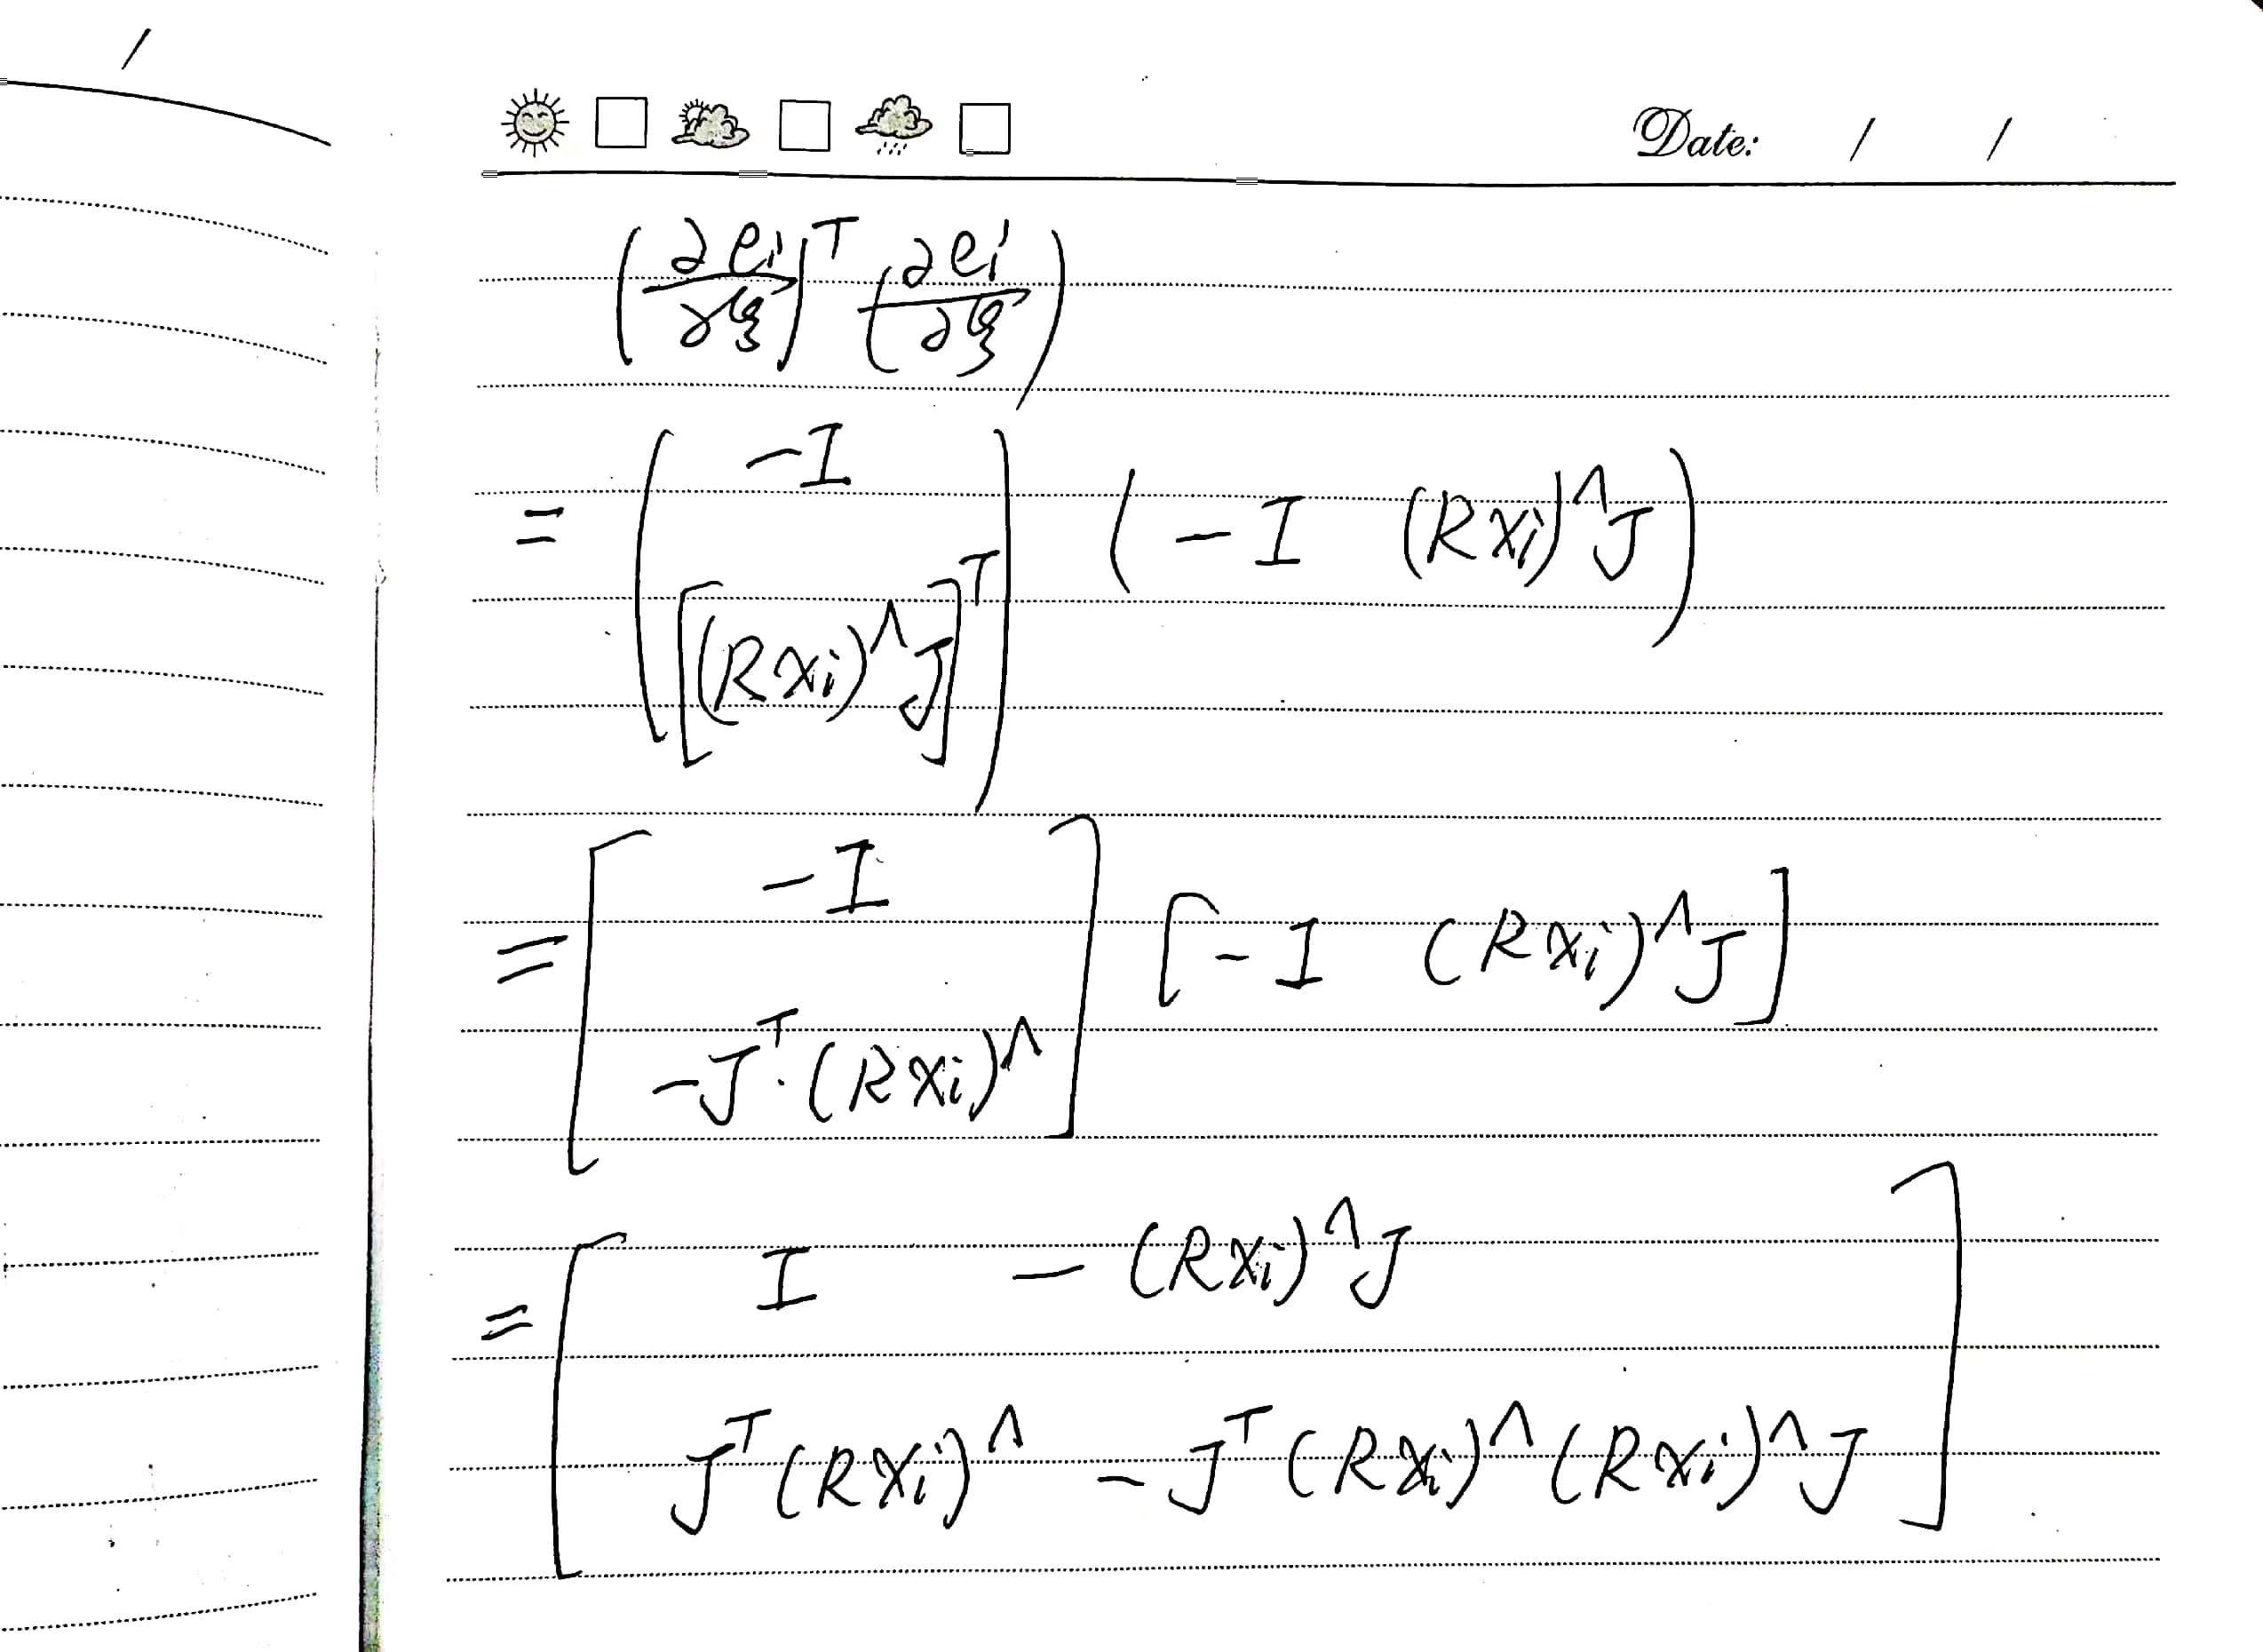 /
Date: / /
(∂ei/∂ξ)ᵀ (∂ei/∂ξ)
= ( -I ; [(Rxi)^J]ᵀ ) ( -I (Rxi)^J )
= [ -I ; -Jᵀ·(Rxi)^ ] [ -I (Rxi)^J ]
= [ I -(Rxi)^J
Jᵀ(Rxi)^ -Jᵀ(Rxi)^(Rxi)^J ]